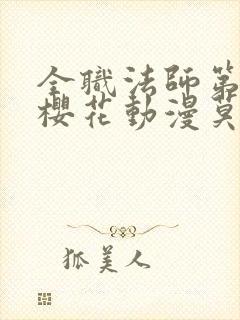 全職法師第
櫻花動漫莫
狐美人